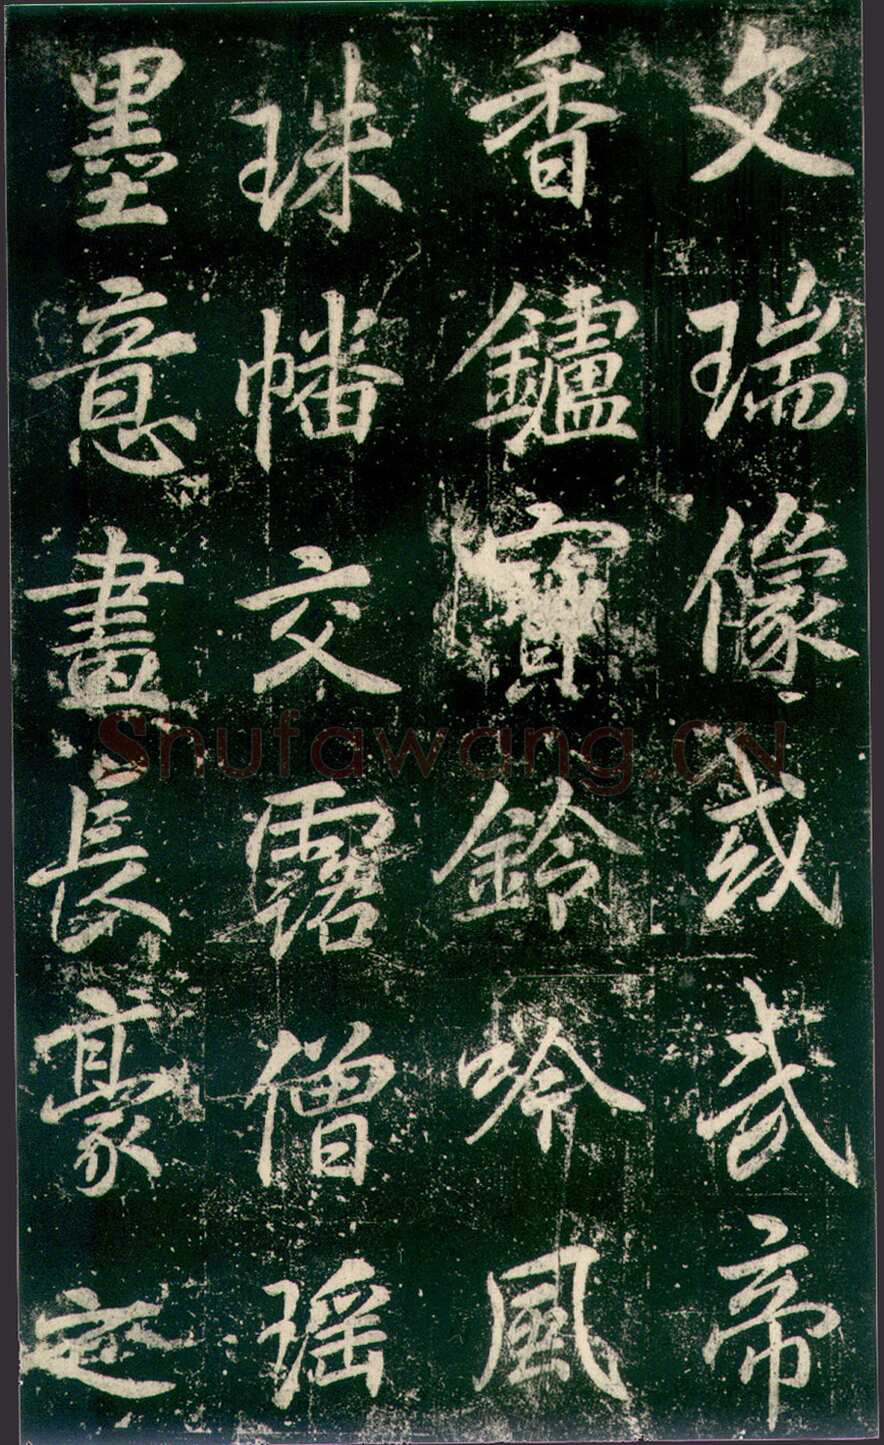 文瑞像或武帝
香鑪寶鈴吟風
珠幡交露僧瑶
墨意畫長豪
Shufawang.CN